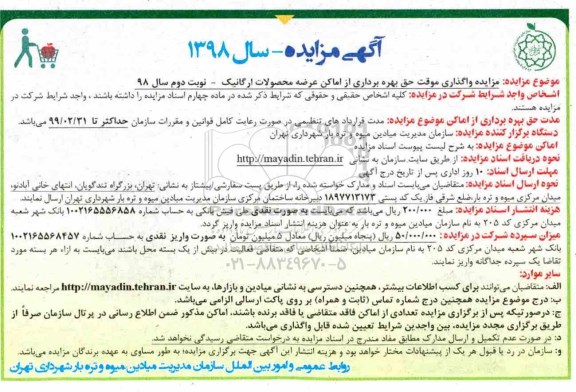 آگهی مزایده - سال ۱۳۹۸
موضوع مزایده: مزایده واگذاری موقت حق بهره برداری از اماکن عرضه محصولات ارگانیک - نوبت دوم سال ۹۸
اشخاص واجد شرایط شرکت در مزایده: کلیه اشخاص حقیقی و حقوقی که شرایط ذکر شده در ماده چهارم اسناد مزایده را داشته باشند ، واجد شرایط شرکت در
مزایده هستند.
مدت حق بهره برداری از اماکن موضوع مزایده: مدت قرارداد های تنظیمی در صورت رعایت کامل قوانین و مقررات سازمان حداکثر تا ۹۹/۰۲/۳۱ می‌باشد.
دستگاه برگزار کننده مزایده: سازمان مدیریت میادین میوه و تره بار شهرداری تهران
اماکن موضوع مزایده: به شرح لیست پیوست اسناد مزایده
نحوه دریافت اسناد مزایده: از طریق سایت سازمان به نشانی http://mayadin.tehran.ir
مهلت ارسال اسناد: ۱۰ روز اداری پس از تاریخ درج آگهی
نحوه ارسال اسناد مزایده: متقاضیان می‌بایست اسناد و مدارک خواسته شده را از طریق پست سفارشی/پیشتاز به نشانی: تهران، بزرگراه تندگویان، انتهای خانی آبادنو،
میدان مرکزی میوه و تره بار،ضلع شرقی فاز یک کد پستی ۱۸۹۷۷۱۳۱۷۳ دبیرخانه ساختمان مرکزی سازمان مدیریت میادین میوه و تره بار شهرداری تهران ارسال نمایند.
هزینه انتشار اسناد مزایده: مبلغ ۲۰۰/۰۰۰ ریال می‌باشد که می‌بایست به صورت نقدی طی فیش بانکی به حساب شماره ۱۰۰۲۱۶۵۵۵۶۸۵۸ بانک شهر شعبه
میدان مرکزی کد ۲۰۵ به نام سازمان میادین میوه و تره بار به عنوان هزینه انتشار اسناد مزایده واریز گردد.
میزان سپرده شرکت در مزایده: ۵۰/۰۰۰/۰۰۰ ریال (پنجاه میلیون ریال) معادل ۵ میلیون تومان به صورت واریز نقدی به حساب شماره ۱۰۰۲۱۶۵۵۶۸۴۵۷
بانک شهر شعبه میدان مرکزی کد ۲۰۵ به نام سازمان میادین، ضمنا اشخاصی که متقاضی فعالیت در بیش از یک بسته محل باشند می‌بایست به ازاء هر بسته مورد
تقاضا یک سپرده جداگانه واریز نمایند.
۰۲۱-۸۸۳۴۹۶۷۰-۵
سایر موارد:
الف: متقاضیان می‌توانند برای کسب اطلاعات بیشتر، همچنین دسترسی به نشانی میادین و بازارها، به سایت http://mayadin.tehran.ir مراجعه نمایند.
ب: درج موضوع مزایده همچنین درج شماره تماس (ثابت و همراه) بر روی پاکت ارسالی الزامی می‌باشد.
ج: درصورتیکه پس از برگزاری مزایده تعدادی از اماکن فاقد متقاضی یا فاقد برنده باشند، اماکن مذکور ضمن اطلاع رسانی در پرتال سازمان صرفاً از
طریق برگزاری مجدد مزایده، بین واجدین شرایط تعیین شده قابل واگذاری می‌باشد.
د: در صورت عدم تکمیل و ارسال مدارک مطابق مفاد مندرج در اسناد مزایده به درخواست متقاضی رسیدگی نخواهد شد.
و: سازمان در رد یا قبول هر یک از پیشنهادات مختار خواهد بود و هزینه انتشار این آگهی (جهت برگزاری مزایده) به طور مساوی به عهده برندگان مزایده می‌باشد.
روابط عمومی و امور بین الملل سازمان مدیریت میادین میوه و تره بار شهرداری تهران